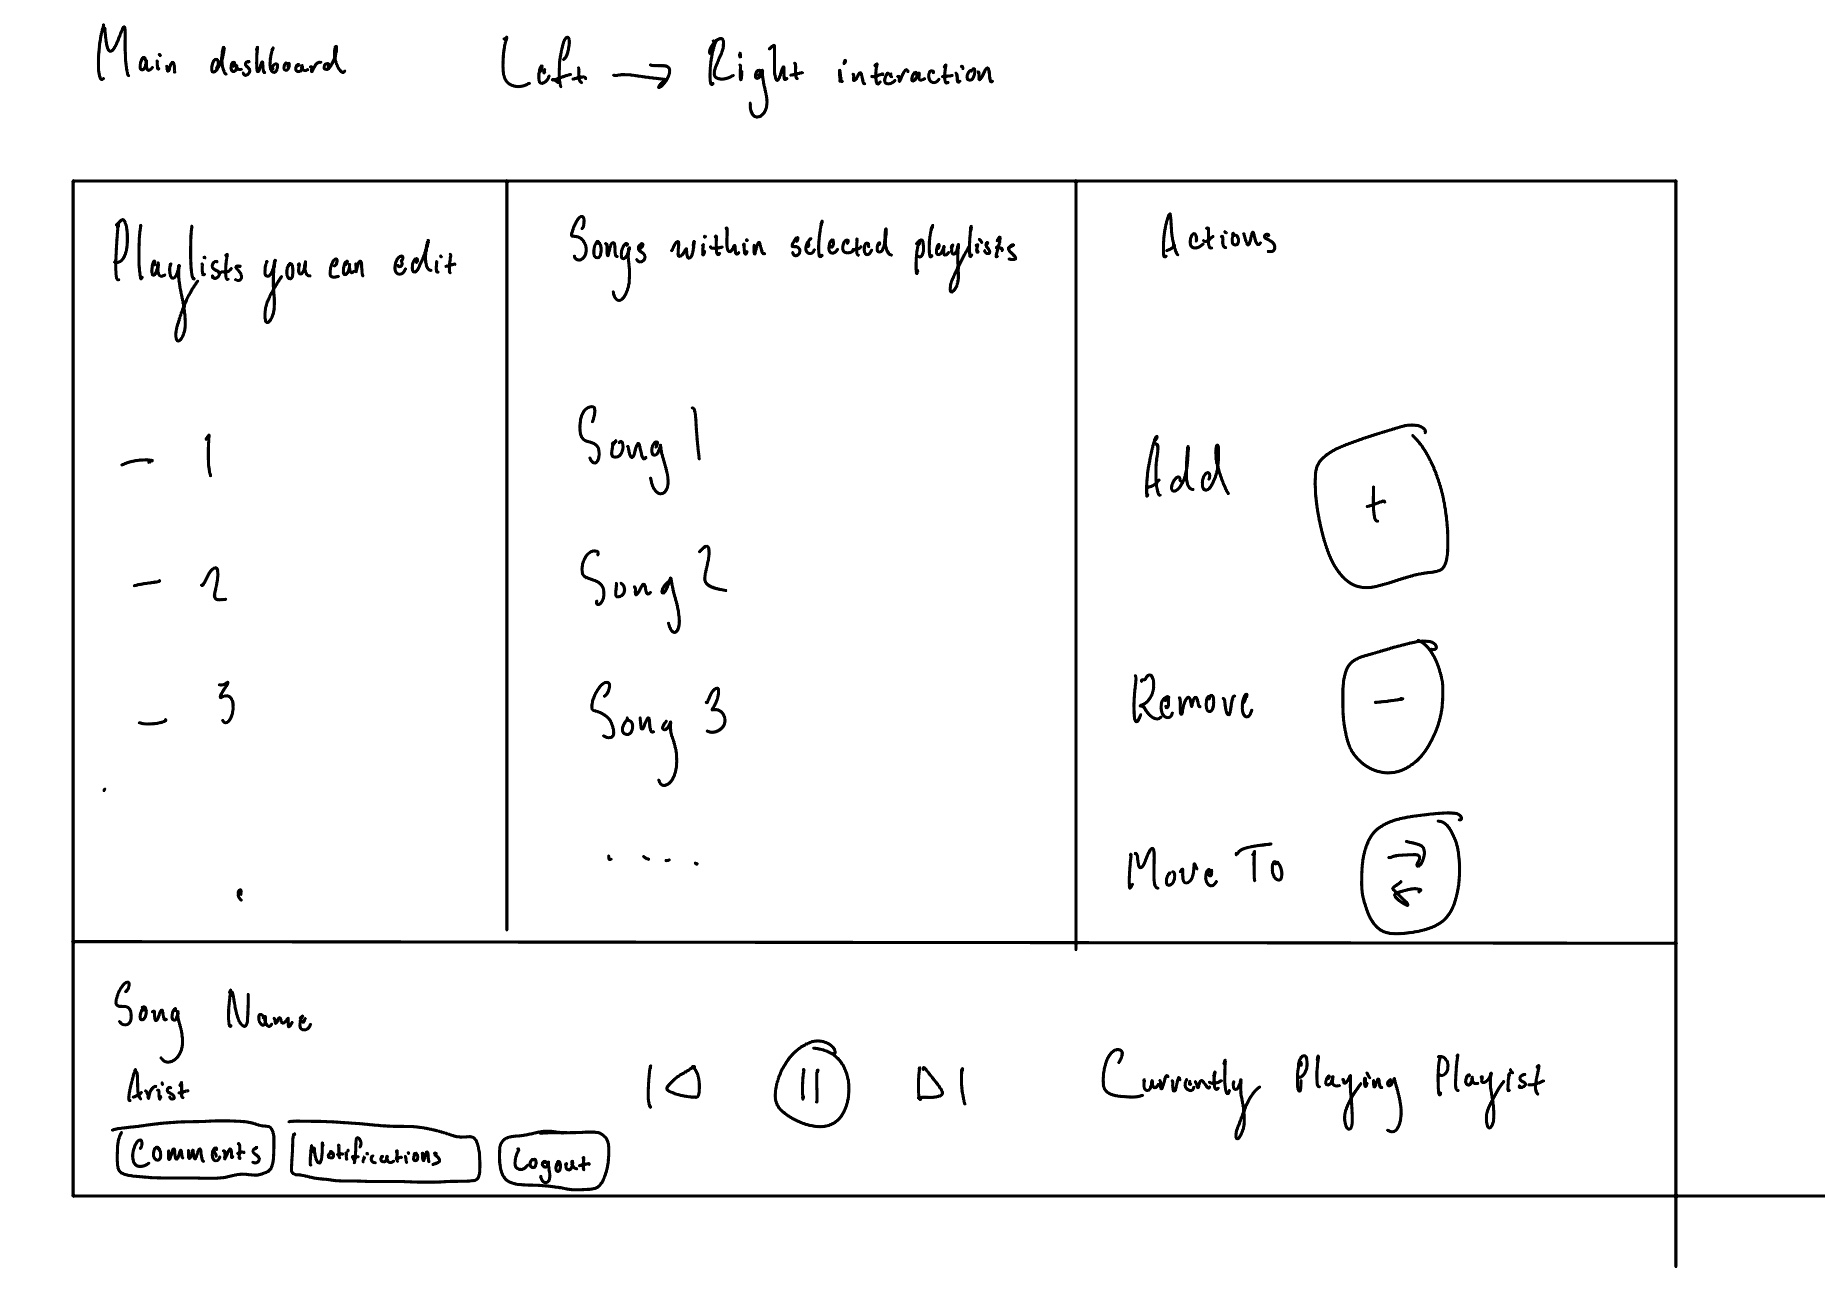 Main dashboard
Left → Right interaction
Playlists you can edit
- 1
- 2
- 3
Songs within selected playlists
Song 1
Song 2
Song 3
....
Actions
Add +
Remove -
Move To
Song Name
Arist
Comments
Notifications
Logout
Currently Playing Playist